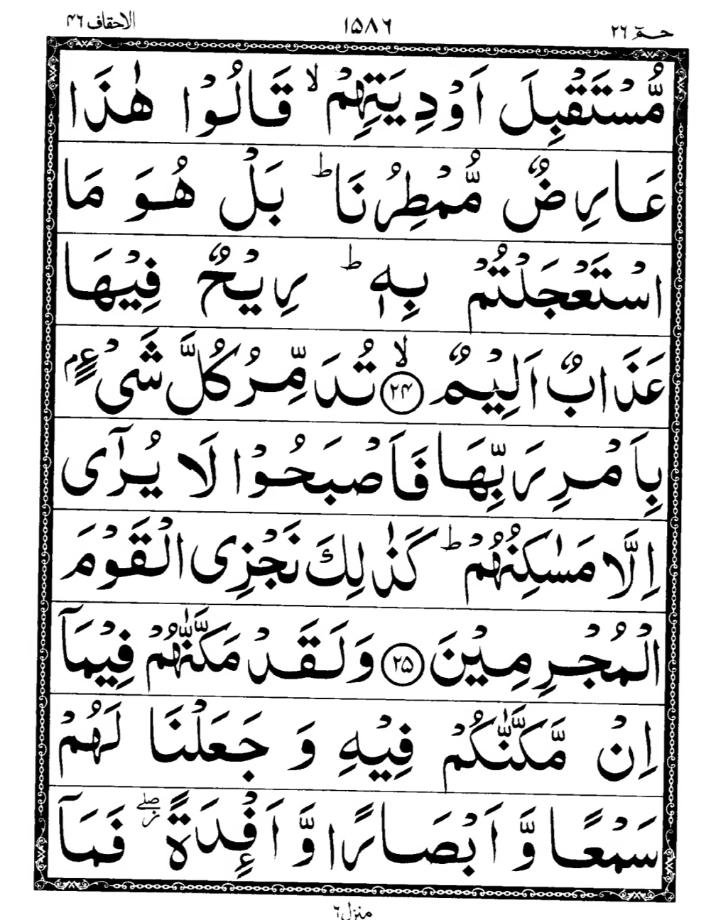 حٰمٓ ٢٦ ١٥٨٦ الاحقاف ٤٦
مُّسْتَقْبِلَ اَوْدِيَتِهِمْ ۙ قَالُوْا هٰذَا
عَارِضٌ مُّمْطِرُنَا ؕ بَلْ هُوَ مَا
اسْتَعْجَلْتُمْ بِهٖ ؕ رِيْحٌ فِيْهَا
عَذَابٌ اَلِيْمٌ ۙ﴿۲۴﴾ تُدَمِّرُ كُلَّ شَيْءٍۭ
بِاَمْرِ رَبِّهَا فَاَصْبَحُوْا لَا يُرٰٓى
اِلَّا مَسٰكِنُهُمْ ؕ كَذٰلِكَ نَجْزِى الْقَوْمَ
الْمُجْرِمِيْنَ ﴿۲۵﴾ وَلَقَدْ مَكَّنّٰهُمْ فِيْمَآ
اِنْ مَّكَّنّٰكُمْ فِيْهِ وَ جَعَلْنَا لَهُمْ
سَمْعًا وَّ اَبْصَارًا وَّ اَفْـِٕدَةً ۖ ز فَمَآ
منزل ٦